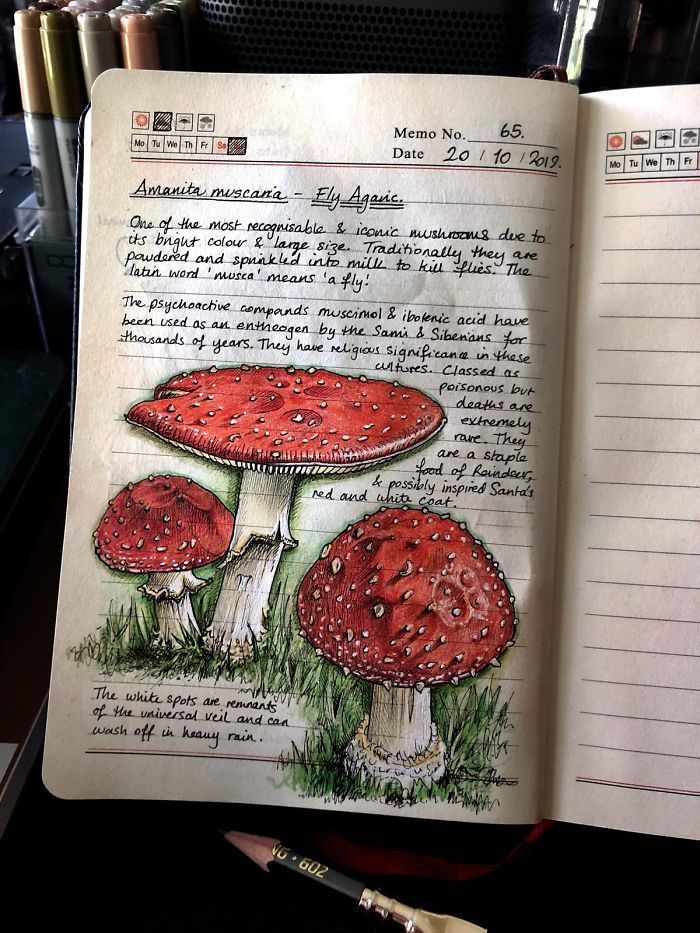 Memo No. 65.
Mo Tu We Th Fr Sa
Date 20 / 10 / 2019.
Mo Tu We Th
Amanita muscaria – Fly Agaric.
One of the most recognisable & iconic mushrooms due to
its bright colour & large size. Traditionally they are
powdered and sprinkled into milk to kill flies. The
latin word 'musca' means 'a fly!
The psychoactive compounds muscimol & ibotenic acid have
been used as an entheogen by the Sami & Siberians for
thousands of years. They have religious significance in these
cultures. Classed as
poisonous but
deaths are
extremely
rare. They
are a staple
food of Reindeer,
& possibly inspired Santa's
red and white coat.
The white spots are remnants
of the universal veil and can
wash off in heavy rain.
NG • 602